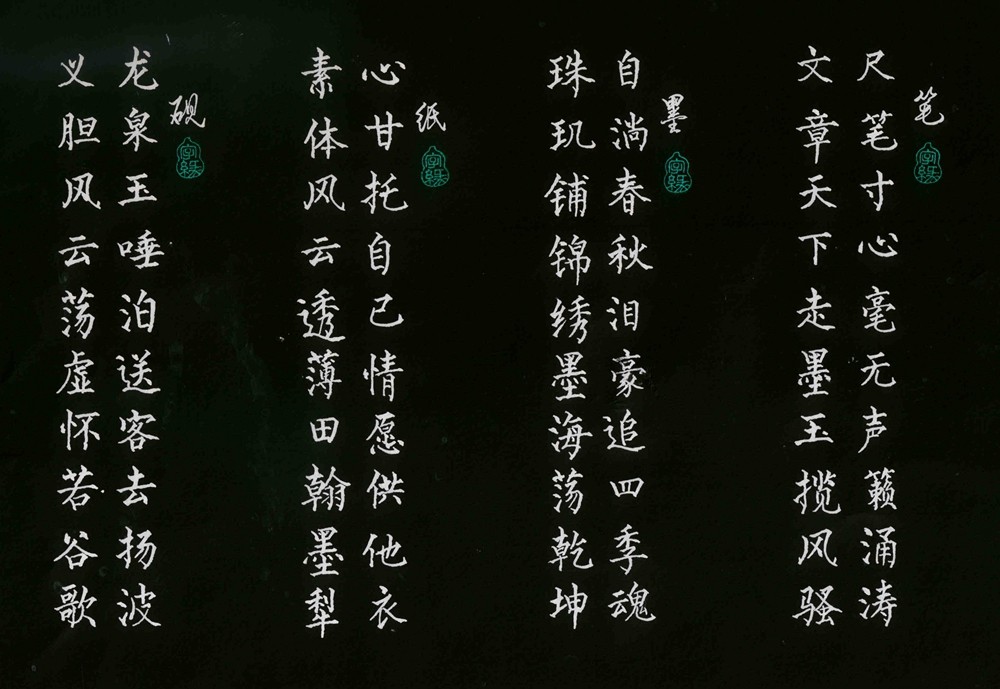 笔
尺笔寸心毫无声籁涌涛
文章天下走墨玉揽风骚
墨
自淌春秋泪豪追四季魂
珠玑铺锦绣墨海荡乾坤
纸
心甘托自己情愿供他衣
素体风云透薄田翰墨犁
砚
龙泉玉唾泊送客去扬波
义胆风云荡虚怀若谷歌